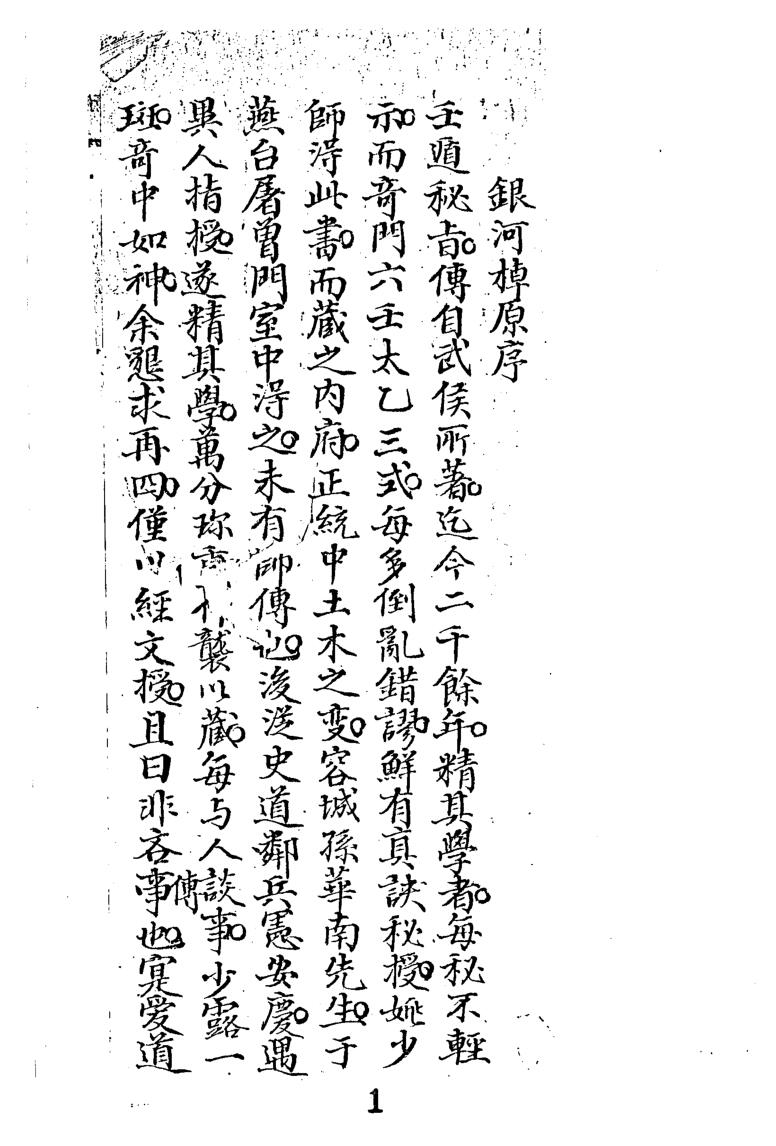 銀河棹原序
壬遁秘旨。傳自武侯所著。迄今二千餘年。精其學者。每秘不輕
示。而奇門六壬太乙三式。每多倒亂錯謬。鮮有真訣秘授。姚少
師淂此書。而蔵之內府。正統中土木之变。容城孫華南先生。于
燕台屠曾門室中淂之。未有師傳也。後從史道鄰兵憲安慶。遇
異人指授。遂精其學。萬分珍 襲以蔵。每与人談事。少露一
斑。奇中如神。余懇求再四。僅以經文授。且曰非吝傳事也。寔爱道
1